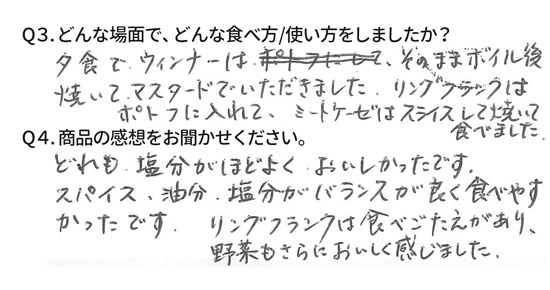 Q3.どんな場面で、どんな食べ方/使い方をしましたか？
夕食で、ウィンナーは、そのままボイル後
焼いて、マスタードでいただきました。リングフランクは
ポトフに入れて、ミートケーゼはスライスして焼いて
食べました。
Q4.商品の感想をお聞かせください。
どれも、塩分がほどよく、おいしかったです。
スパイス、油分、塩分がバランスが良く食べやす
かったです。リングフランクは食べごたえがあり、
野菜もさらにおいしく感じました。